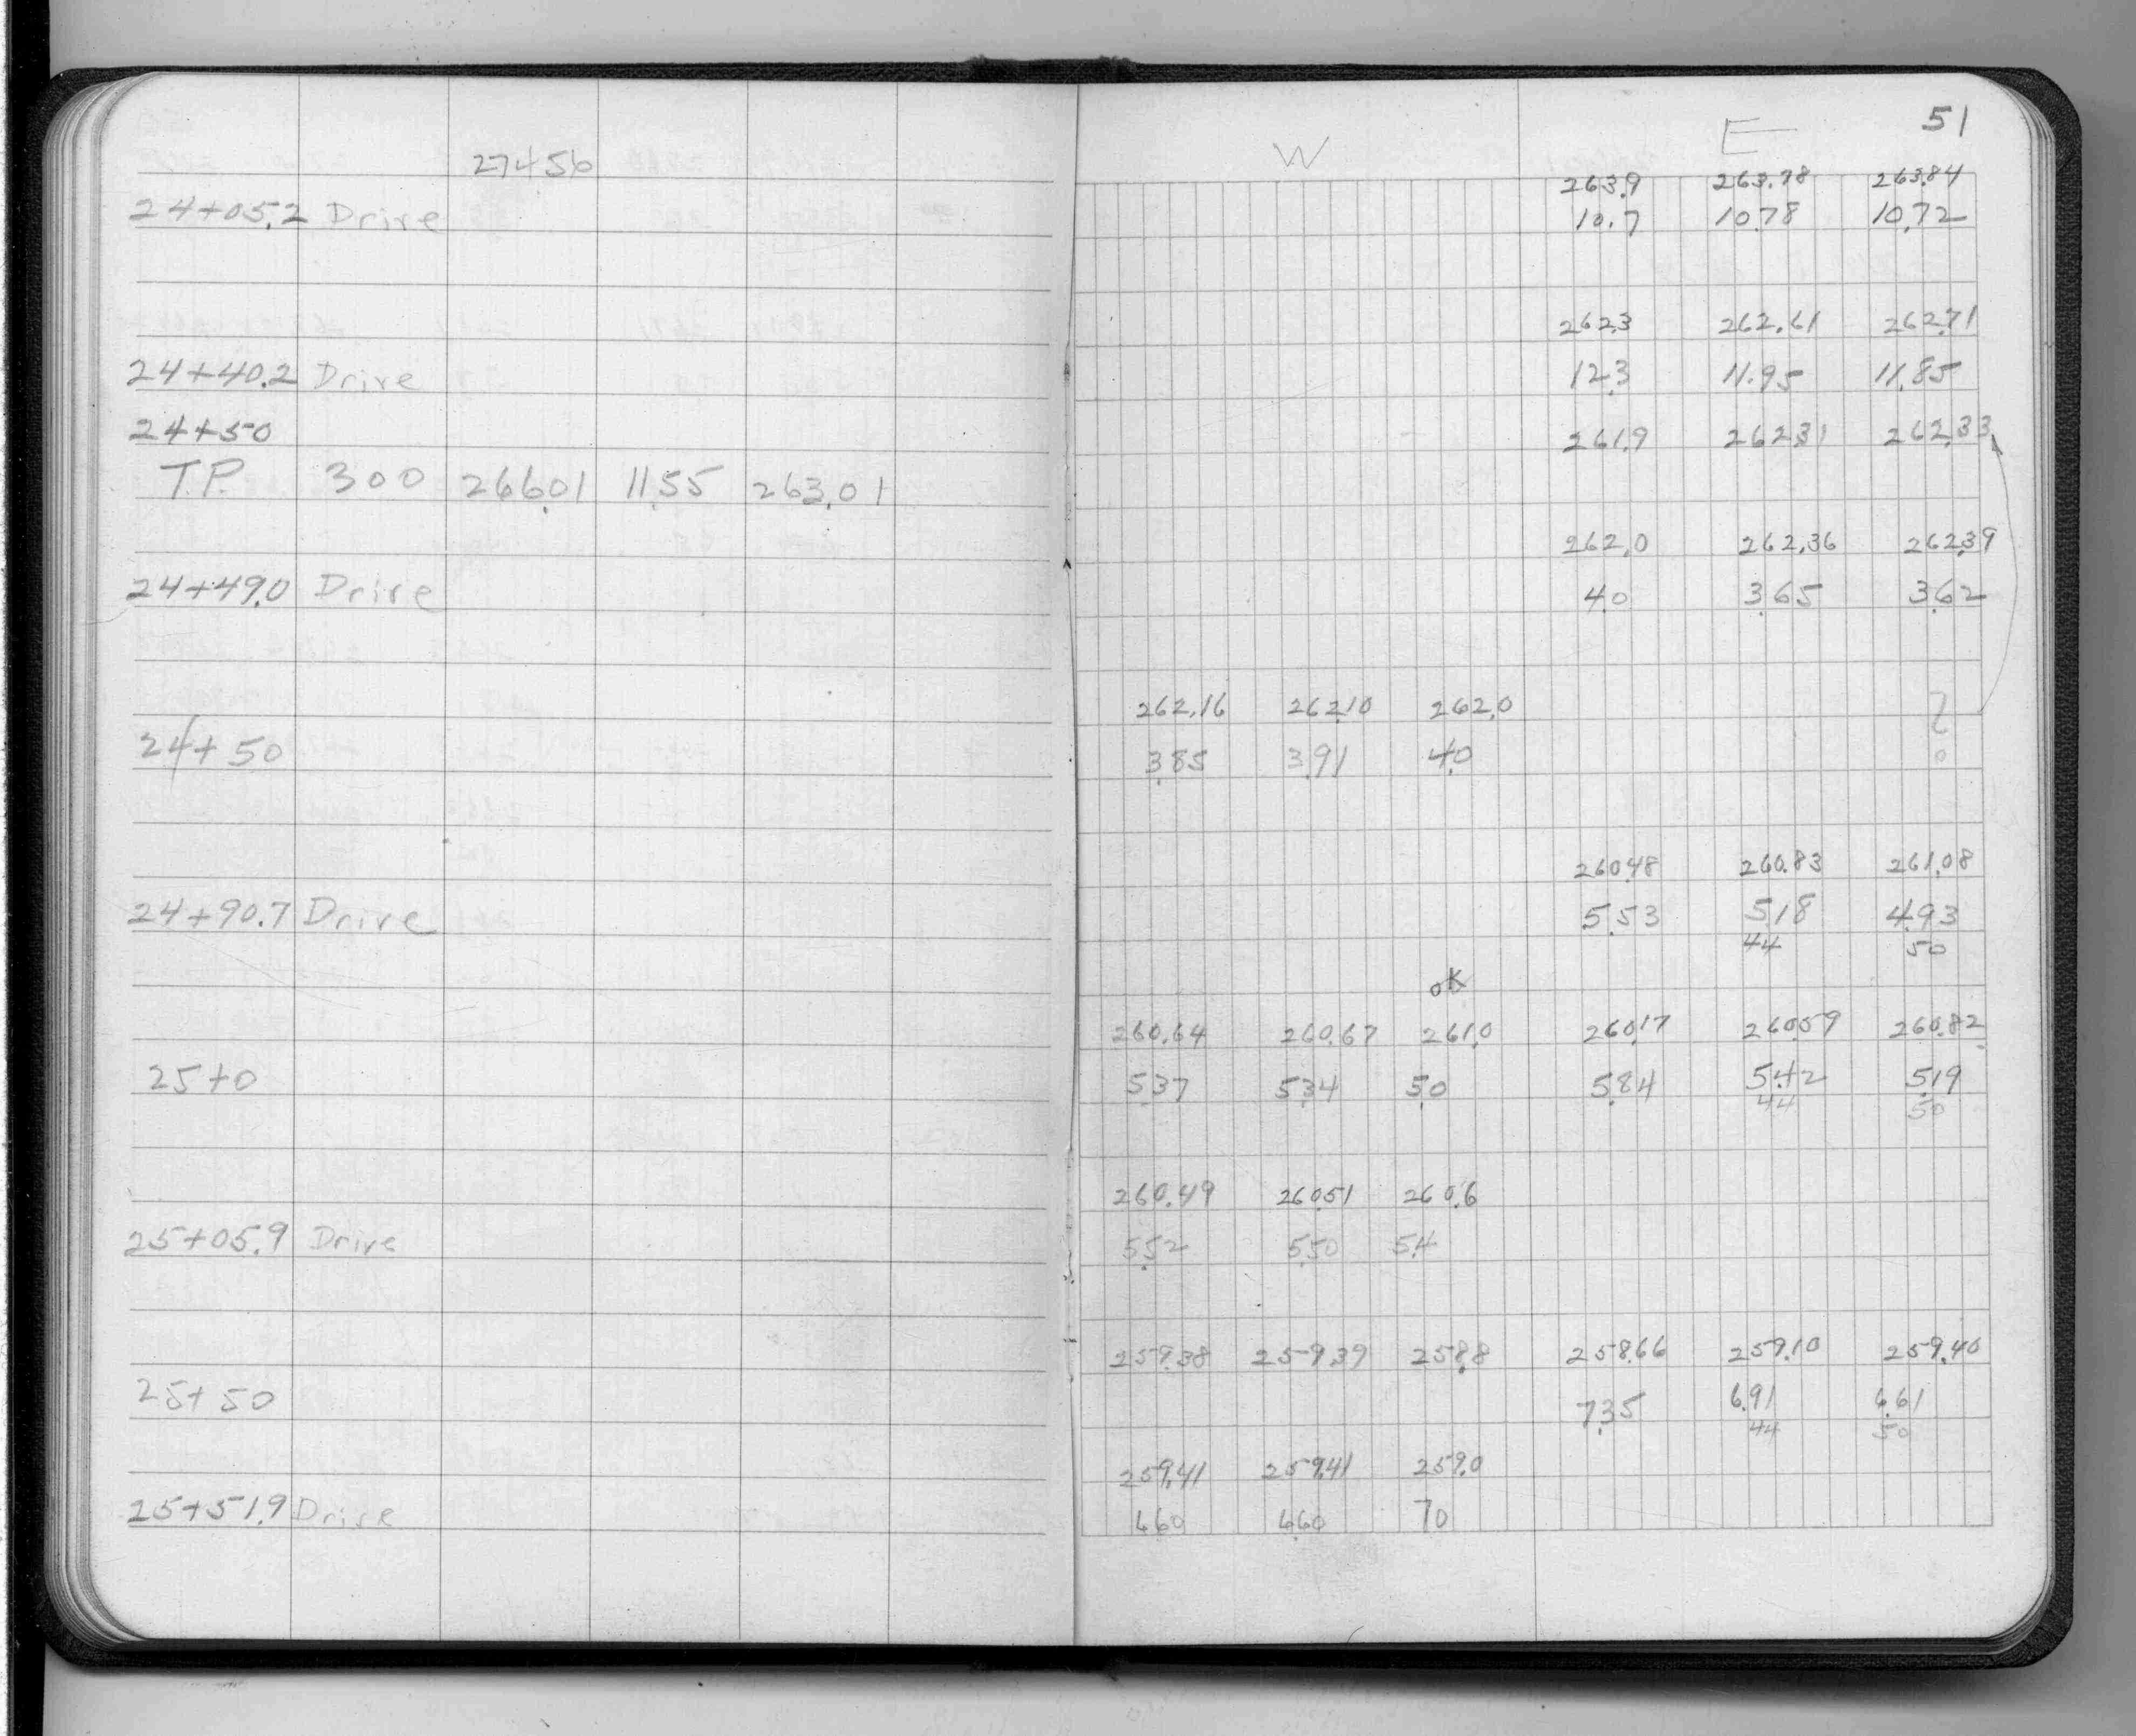 51
W E
274.56 263.9 263.78 263.84
24+05.2 Drive 10.7 10.78 10.72
262.3 262.61 262.71
24+40.2 Drive 12.3 11.95 11.85
24+50 261.9 262.31 262.33
T.P. 300 266.01 11.55 263.01
262.0 262.36 262.39
24+49.0 Drive 4.0 3.65 3.62
262.16 262.10 262.0 ?
24+50 3.85 3.91 4.0
260.48 260.83 261.08
24+90.7 Drive 5.53 5.18 4.93
44 50
OK
260.64 260.67 261.0 260.17 260.59 260.82
25+0 5.37 5.34 5.0 5.84 5.42 5.19
44 50
260.49 260.51 260.6
25+05.9 Drive 5.52 5.50 5.4
259.38 259.39 258.8 258.66 259.10 259.40
25+50 7.35 6.91 6.61
44 50
259.41 259.41 259.0
25+51.9 Drive 6.60 6.60 7.0